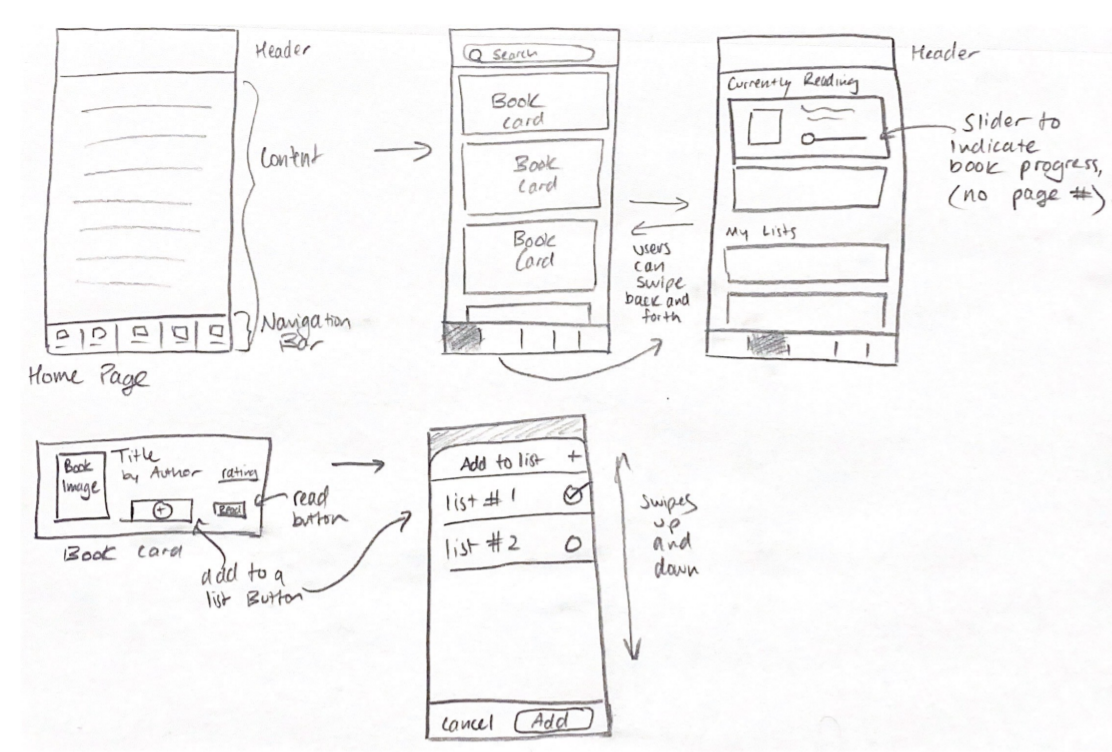 Header
Content
Navigation
Bar
Home Page
Search
Book
card
Book
Card
Book
Card
users
can
swipe
back and
forth
Header
Currently Reading
My Lists
Slider to
indicate
book progress,
(no page #)
Book
Image
Title
by Author
rating
+
Read
Book card
read
button
add to a
list Button
Add to list +
list #1
list #2
Cancel Add
swipes
up
and
down